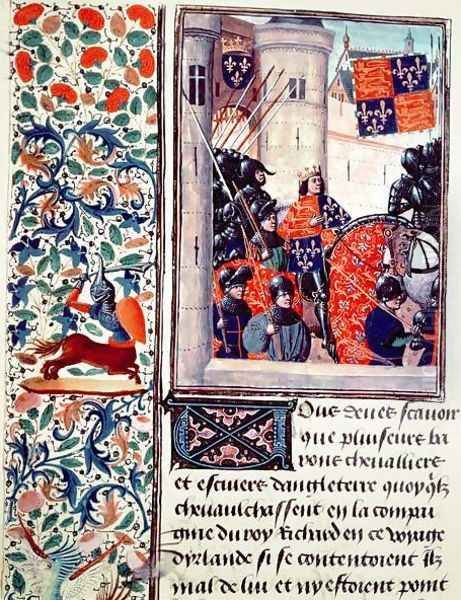 Vous deves scavoir
que pluiseurs ba
rons chevalliers
et escuiers dangleterre quoy qlz
chevaulchassent en la compai
gnie du roy Richard en ce voyage
dyrlande si se contentoient Ilz
mal de lui et ny estoient point